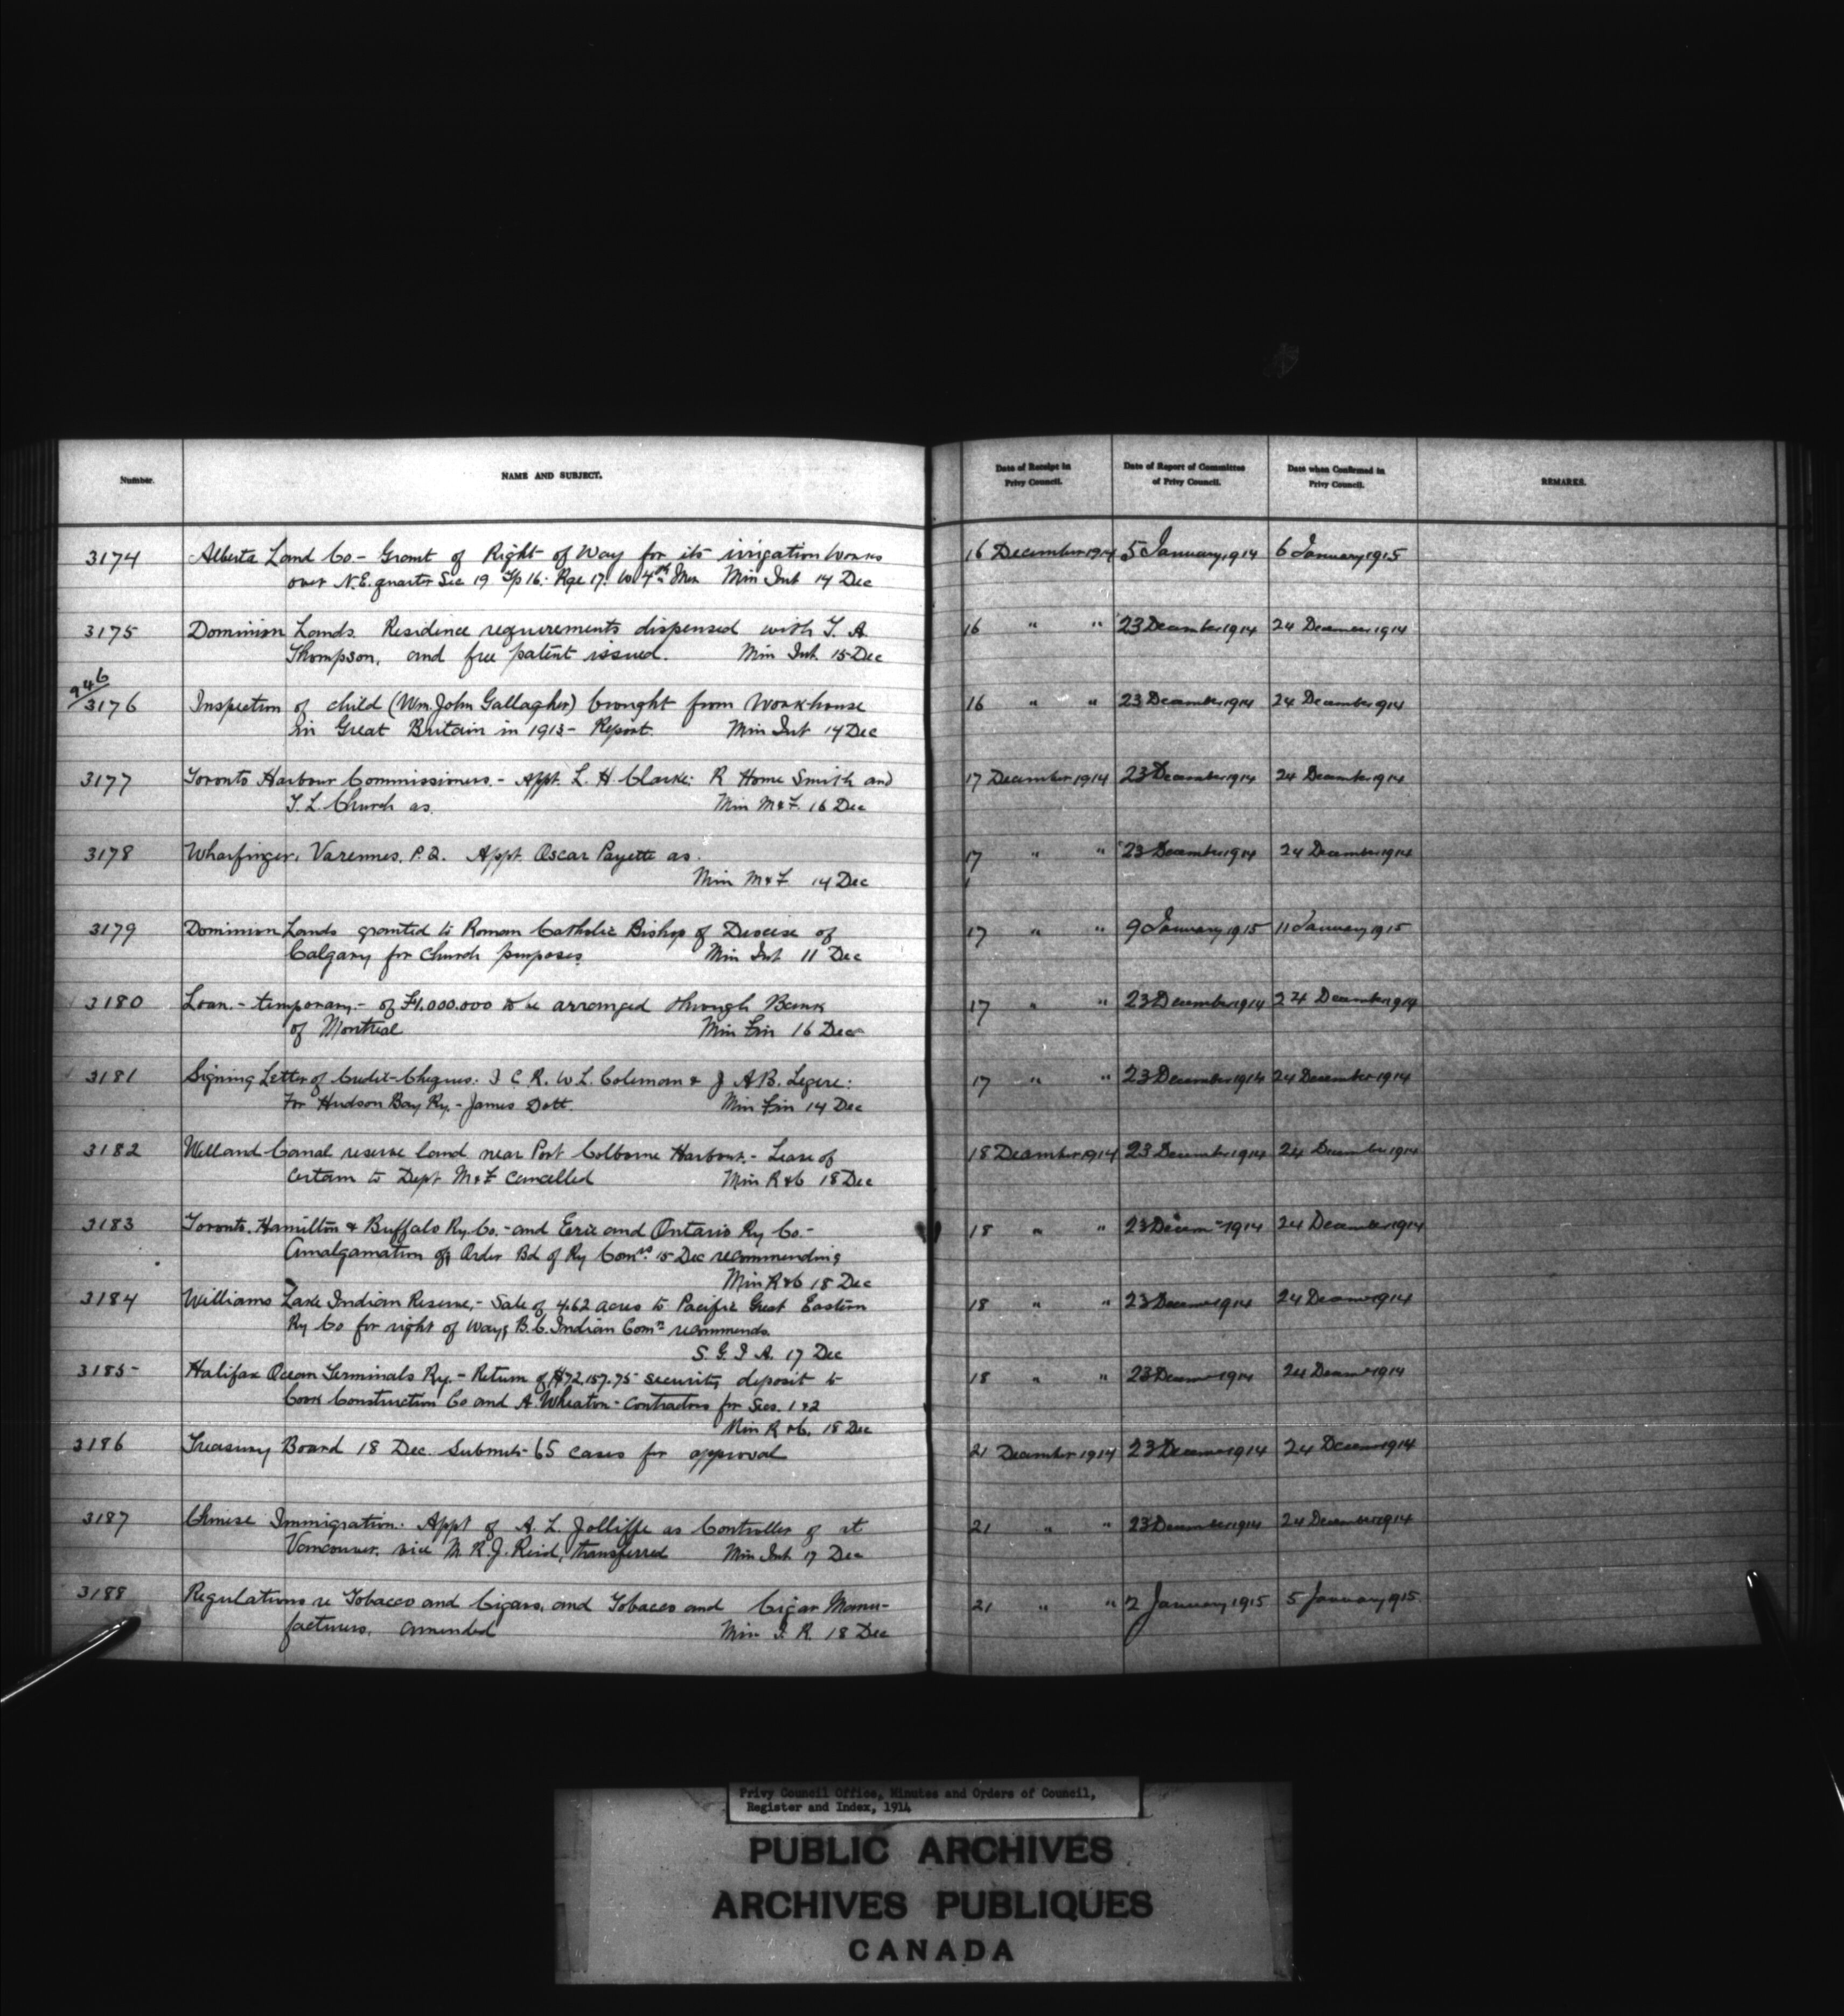 Number. NAME AND SUBJECT. Date of Receipt in Privy Council. Date of Report of Committee of Privy Council. Date when Confirmed in Privy Council. REMARKS.
3174 Alberta Land Co - Grant of Right of Way for its irrigation works 16 December 1914 5 January 1914 6 January 1915
over N.E. quarter Sec 19 Tp 16. Rge 17. W 4th Mer Min Int 14 Dec
3175 Dominion Lands. Residence requirements dispensed with T. A 16 " " 23 December 1914 24 December 1914
Thompson, and free patent issued. Min Int 15 Dec
946
3176 Inspection of child (Wm. John Gallagher) brought from Workhouse 16 " " 23 December 1914 24 December 1914
in Great Britain in 1913 - Report. Min Int 14 Dec
3177 Toronto Harbour Commissioners. - Appt. L. H. Clarke: R Home Smith and 17 December 1914 23 December 1914 24 December 1914
T. L. Church as. Min M & F. 16 Dec
3178 Wharfinger, Varennes, P.Q. Appt. Oscar Payette as. 17 " " 23 December 1914 24 December 1914
Min M & F 14 Dec
3179 Dominion Lands granted to Roman Catholic Bishop of Diocese of 17 " " 9 January 1915 11 January 1915
Calgary for Church purposes. Min Int 11 Dec
3180 Loan. - temporary - of £1.000.000 to be arranged through Bank 17 " " 23 December 1914 24 December 1914
of Montreal Min Fin 16 Dec
3181 Signing Letter of Credit Cheques. I C R. W L. Coleman & J A B. Legere: 17 " " 23 December 1914 24 December 1914
For Hudson Bay Ry. - James Dott. Min Fin 14 Dec
3182 Welland Canal reserve land near Port Colborne Harbour. - Lease of 18 December 1914 23 December 1914 24 December 1914
certain to Dept M & F cancelled Min R & C 18 Dec
3183 Toronto. Hamilton & Buffalo Ry. Co. - and Erie and Ontario Ry Co. - 18 " " 23 Decem " 1914 24 December 1914
Amalgamation of, Order Bd of Ry Comrs 15 Dec recommending
Min R & C 18 Dec
3184 Williams Lake Indian Reserve, - Sale of 4.62 acres to Pacific Great Eastern 18 " " 23 December 1914 24 December 1914
Ry Co for right of way, B.C. Indian Comn recommends.
S. G. I A. 17 Dec
3185 Halifax Ocean Terminals Ry. - Return of $72,157.75 security deposit to 18 " " 23 December 1914 24 December 1914
Cook Construction Co and A. Wheaton - Contractors for Secs. 1 & 2
Min R & C. 18 Dec
3186 Treasury Board 18 Dec. Submits 65 cases for approval 21 December 1914 23 December 1914 24 December 1914
3187 Chinese Immigration. Appt of A. L. Jolliffe as Controller of at 21 " " 23 December 1914 24 December 1914
Vancouver, vice M. R. J. Reid, transferred Min Int 17 Dec
3188 Regulations re Tobacco and Cigars, and Tobacco and Cigar Manu- 21 " " 2 January 1915 5 January 1915
facturers, amended Min I. R. 18 Dec
Privy Council Office, Minutes and Orders of Council,
Register and Index, 1914
PUBLIC ARCHIVES
ARCHIVES PUBLIQUES
CANADA